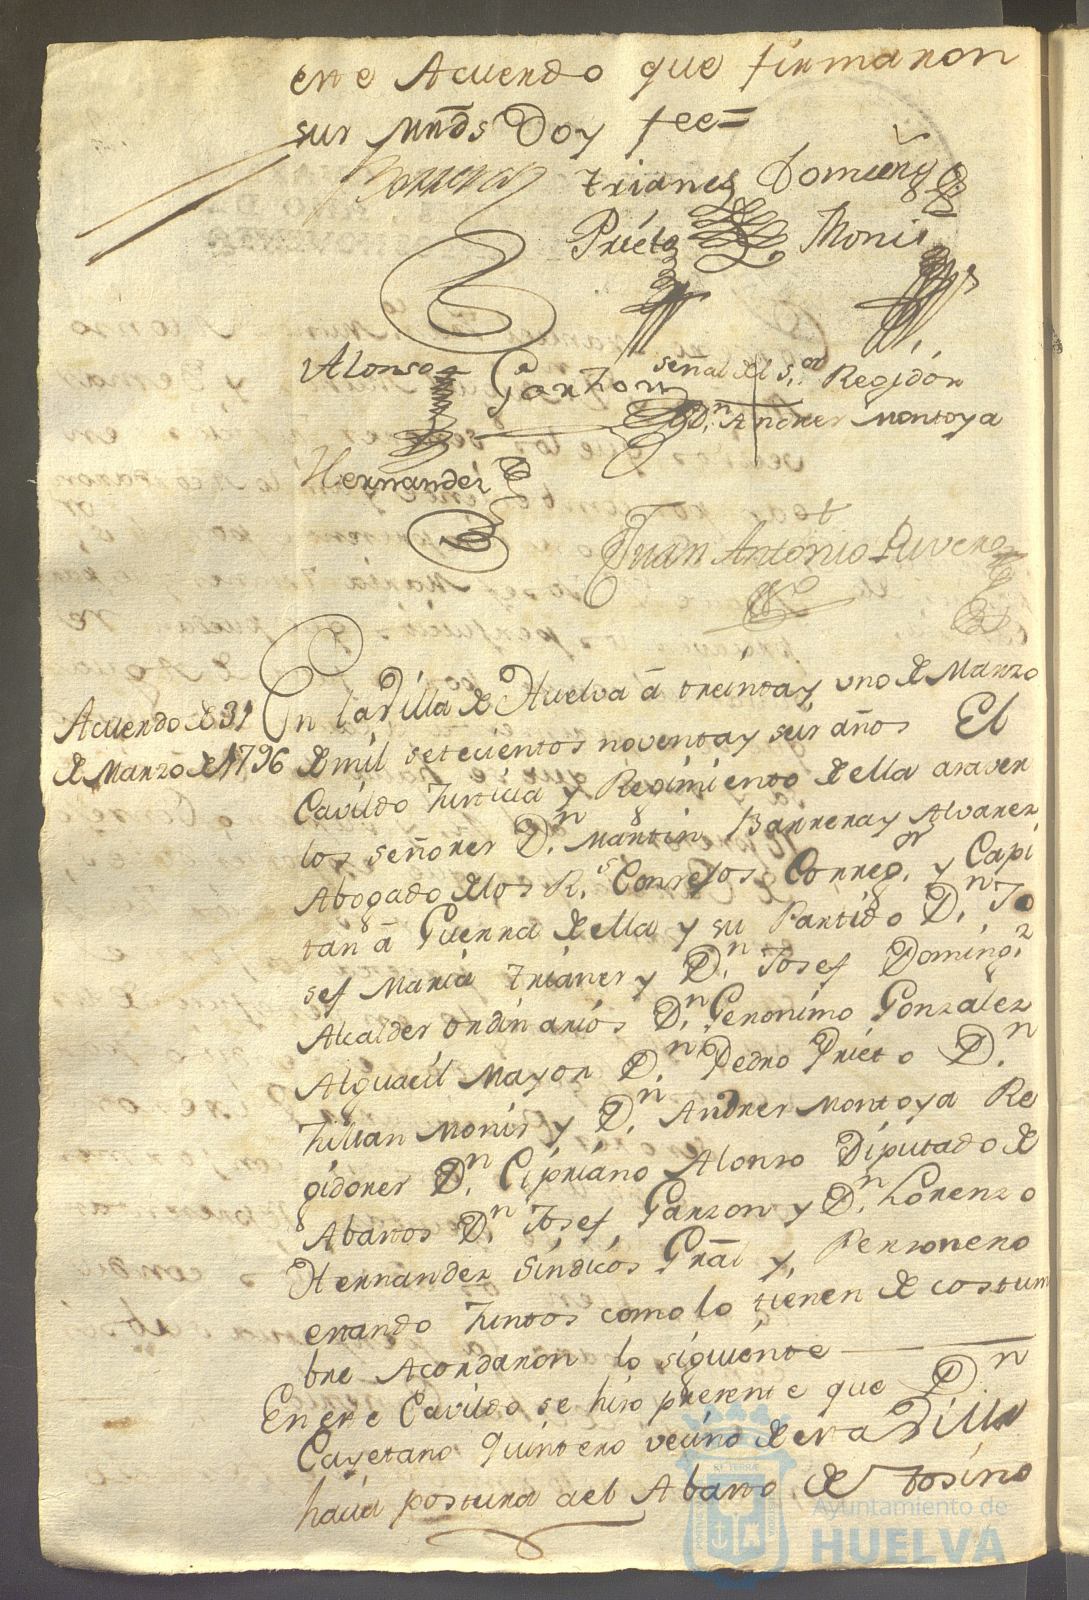 este Acuerdo que firmaron
sus Mrds Doy fee=
Barrera Trianes Doming
Prieto Monis
Alonso Garzon señal del S.or Regidor
D.n Andres Montoya
Hernandez
Juan Antonio Rivera
Acuerdo de 31
de Marzo de 1796
En la Villa de Huelva â treinta y uno de Marzo
de mil setecientos noventa y seis años El
Cavildo Justicia y Regimiento de ella a saver
los señores D.n Martin Barrera y Alvarez
Abogado de los R.s Consejos Correg.or y Capi
tan â Guerra de ella y su Partido D.n Jo
sef Maria Trianes y D.n Josef Doming.z
Alcaldes ordinarios D.n Geronimo Gonzalez
Alguacil Mayor D.n Pedro Prieto D.n
Julian Monis y D.n Andres Montoya Re
gidores D.n Cipriano Alonso Diputado de
Abastos D.n Josef Garzon y D.n Lorenzo
Hernandez Sindicos Gral y Personero
estando Juntos como lo tienen de costum
bre Acordaron lo siguiente
En este Cavildo se hiso presente que D.n
Cayetano Quintero vecino de esta Villa
hacia postura del Abasto de tosino
Ayuntamiento de
HUELVA